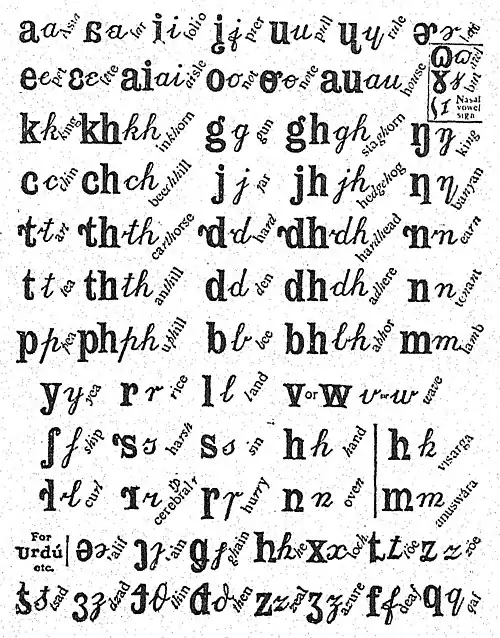 a a Asia ɞ a far i i folio į į pier u u pull ɥ ɥ rule ə ə
e e pet ɛ ɛ ai ai aisle o o not ɵ ɵ note au au house
ɤ ɤ but
Nasal vowel sign
k k king kh kh inkhorn g g gun gh gh staghorn ŋ ŋ king
c c chin ch ch beechhill j j jar jh jh hedgehog ƞ ƞ bunyan
t t art th th carthorse d d hard dh dh hardhead n n earn
t t tea th th anthill d d den dh dh adhere n n tenant
p p pea ph ph uphill b b bee bh bh abhor m m lamb
y y yea r r rice l l land v or w v or w wave
ʃ ʃ ship s s harsh s s sin h h hand h h visarga
l l curl r r cerebral r r hurry n n oven m m anuswára
For Urdú etc. ə ə alif ʒ ʒ ain g g ghain h h he x x loch t t toe z z zoe
s s sad ʒ ʒ dzad θ θ thin d d then z z zeal ʒ ʒ azure f f deaf q q qaf